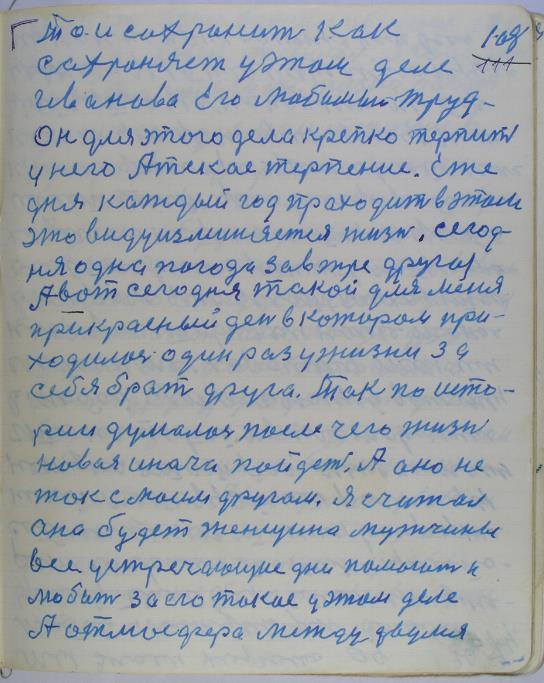 То и сохронит как
108
сохроняет у этом деле
111
Иванова Его любимый труд-
Он для этого дела крепко терпит
у него Атское терпение. Еже
дня каждый год праходит в этом
это виду изминяется жизн. сегод-
ня одна погода завтре другая
А вот сегодня такой для меня
прикрасный ден в котором при-
ходилос один раз у жизни за
себя брат друга. Так по исто-
рии думалос после чего жизн
новая иначе пойдет. А ано не
так с моим другом. Я считал
ана будет женщина мужчины
все устречающие дни помогат и
любит за его такое у этом деле
А отмосфера между двумя